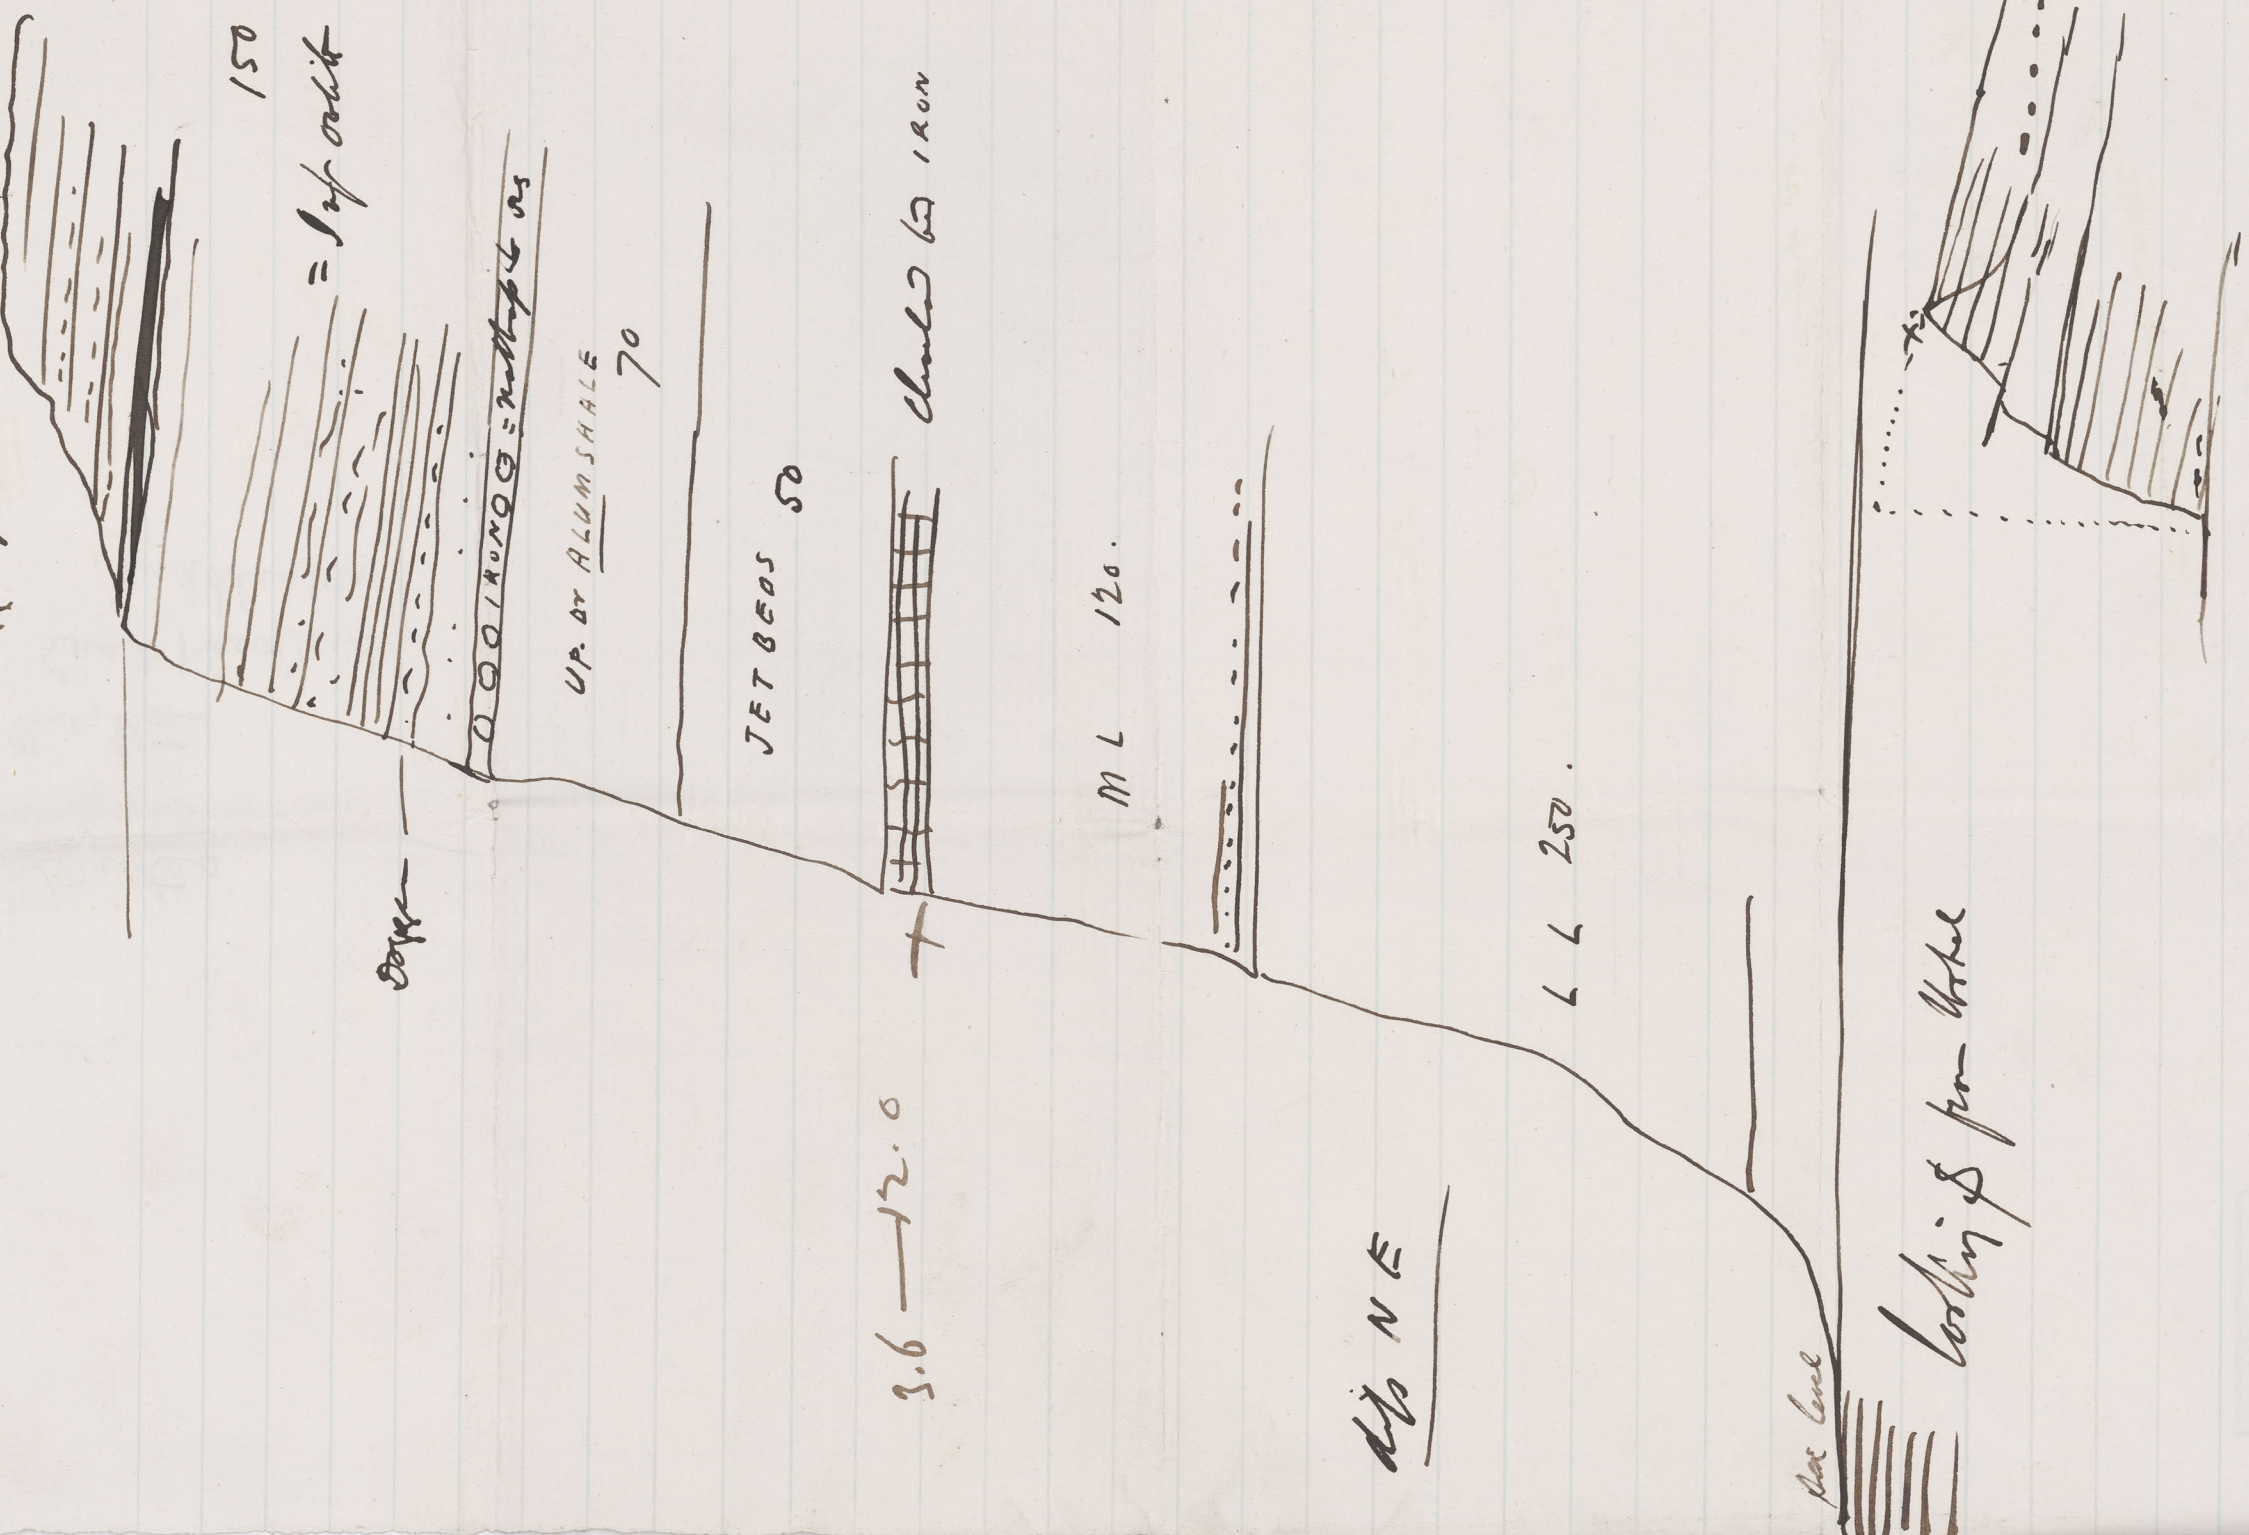 150
= Inf oolite
Dogger
IRON = Northampt ons
UP. or ALLUMSHALE
70
JET BEDS 50
Cleveland bed IRON
3.6 — 12.0
M L 120.
L L 250.
dips N E
sea level
looking S from Hotel